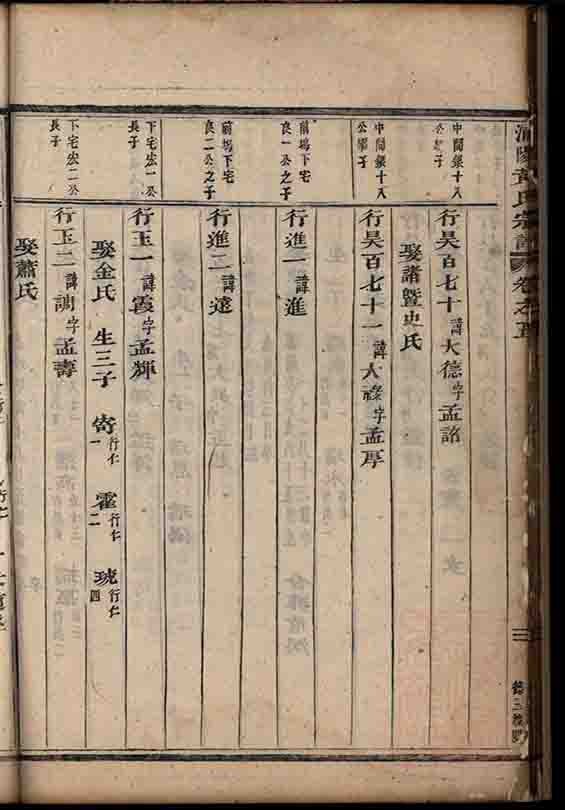 黃氏宗譜 卷之
中間銀十八公長子
行昊百七十諱大德字孟銘
娶諸暨史氏
中間銀十八公子
行昊百七十一諱大祿字孟厚
前塢下宅良一公之子
行進一諱進
前塢下宅良二公之子
行進二諱遠
下宅宏一公長子
行玉一諱霞字孟輝
娶金氏 生三子 行仁一 霍行仁二 琥行仁四
下宅宏二公長子
行玉二諱 字孟壽
娶蕭氏
三